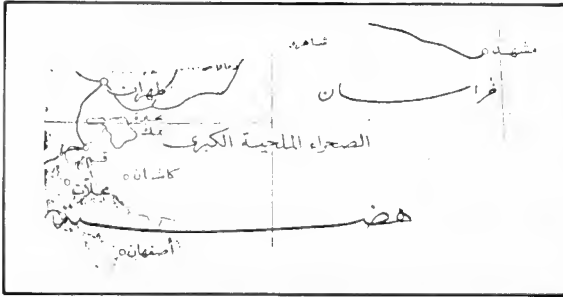 مشهد
خراسان
طهران
الصحراء الملحية الكبرى
قم
كاشان
محلات
هضبة
أصفهان